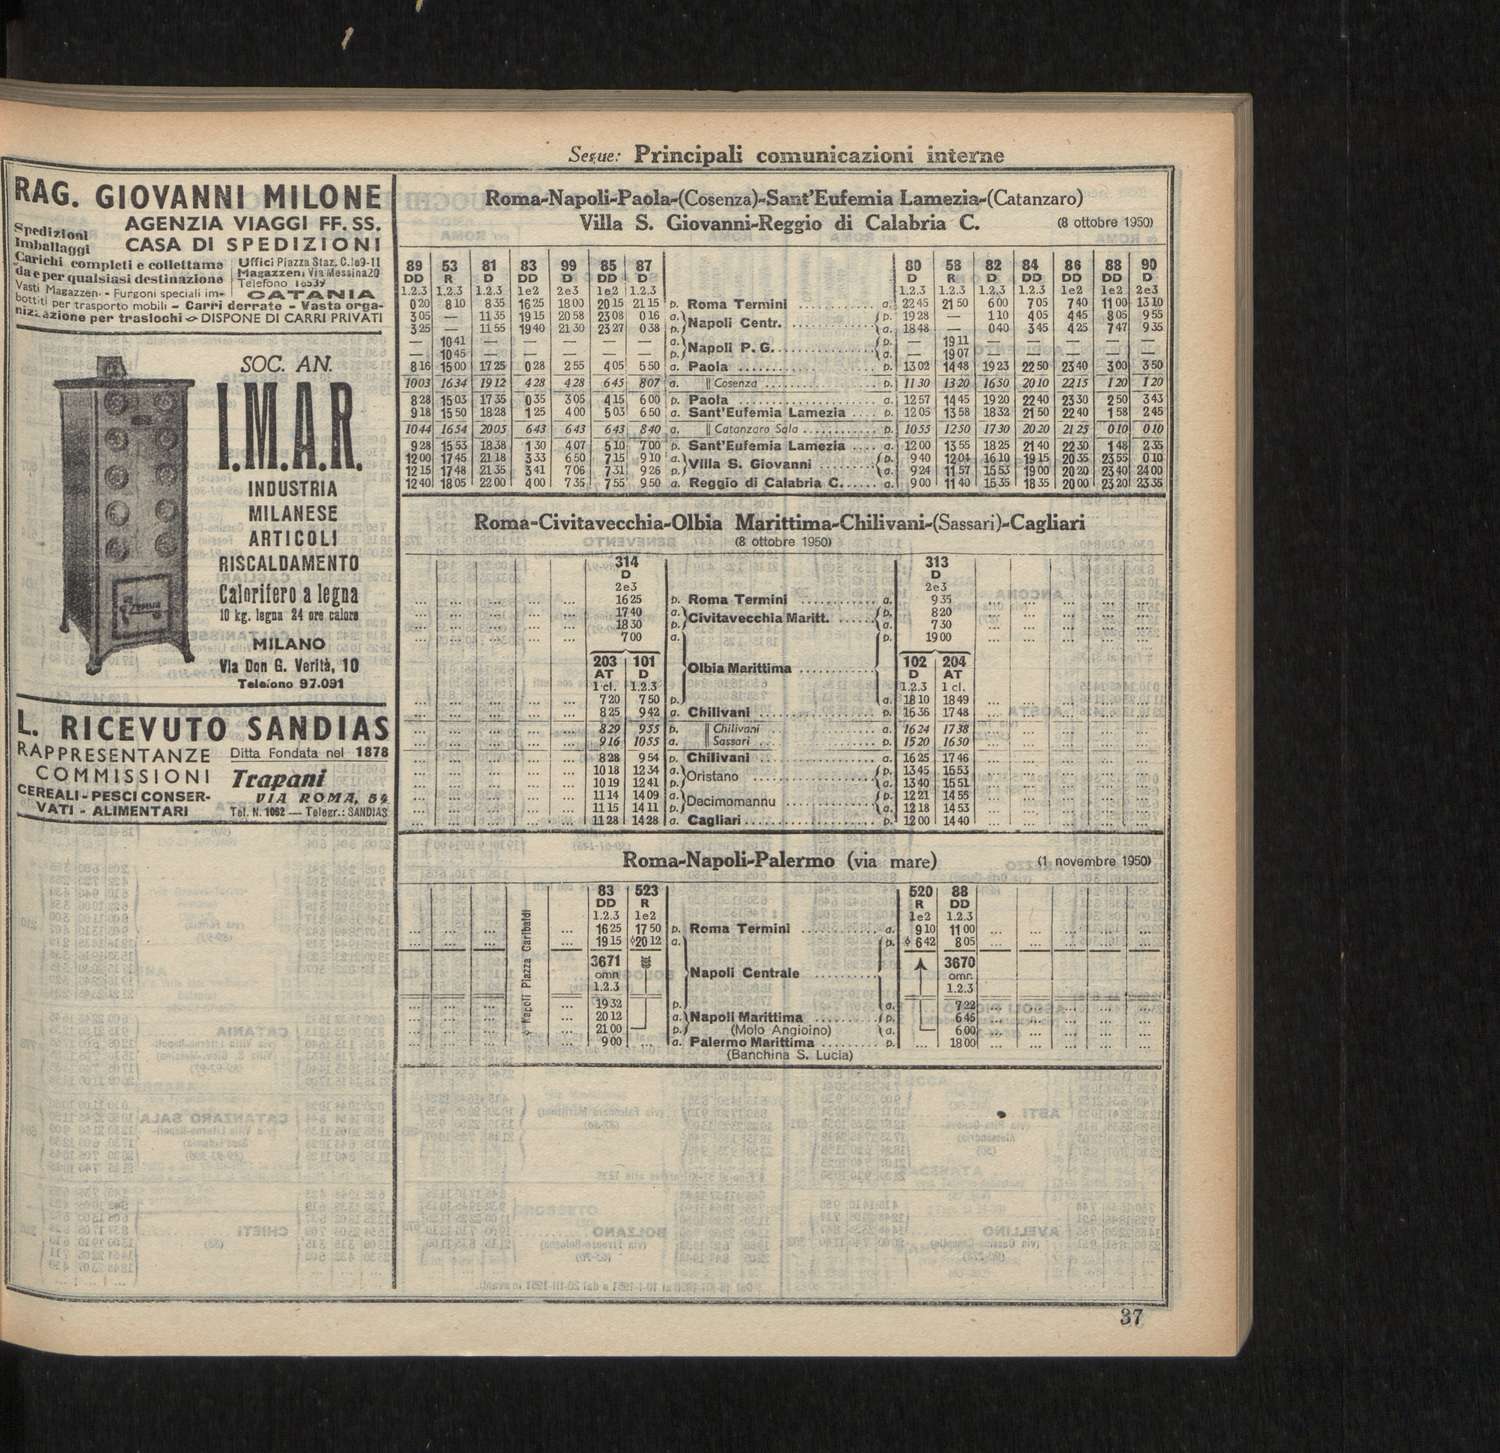 Segue: Principali comunicazioni interne
RAG. GIOVANNI MILONE
AGENZIA VIAGGI FF. SS.
CASA DI SPEDIZIONI
Spedizioni
Imballaggi
Carichi completi e collettame
da e per qualsiasi destinazione
Uffici Piazza Staz. C. 109-11
Magazzeni Via Messina 20
Telefono 16539
CATANIA
Vasti Magazzen - Furgoni speciali im-
bottiti per trasporto mobili - Carri derrate - Vasta orga-
nizzazione per traslochi - DISPONE DI CARRI PRIVATI
SOC. AN.
I.M.A.R.
INDUSTRIA
MILANESE
ARTICOLI
RISCALDAMENTO
Calorifero a legna
10 kg. legna 24 ore calore
MILANO
Via Don G. Verità, 10
Telefono 97.091
L. RICEVUTO SANDIAS
RAPPRESENTANZE
COMMISSIONI
CEREALI - PESCI CONSER-
VATI - ALIMENTARI
Ditta Fondata nel 1878
Trapani
VIA ROMA, 54
Tel. N. 1062 — Telegr.: SANDIAS
Roma-Napoli-Paola-(Cosenza)-Sant'Eufemia Lamezia-(Catanzaro)
Villa S. Giovanni-Reggio di Calabria C. (8 ottobre 1950)
89 53 81 83 99 85 87 80 58 82 84 86 88 90
DD R D DD D DD D D R D DD DD DD D
1.2.3 1.2.3 1.2.3 1e2 2e3 1e2 1.2.3 1.2.3 1.2.3 1.2.3 1.2.3 1e2 1e2 2e3
0 20 8 10 8 35 16 25 18 00 20 15 21 15 p. Roma Termini a. 22 45 21 50 6 00 7 05 7 40 11 00 13 10
3 05 — 11 35 19 15 20 58 23 08 0 16 a. Napoli Centr. p. 19 28 — 1 10 4 05 4 45 8 05 9 55
3 25 — 11 55 19 40 21 30 23 27 0 38 p. a. 18 48 — 0 40 3 45 4 25 7 47 9 35
— 10 41 — — — — — a. Napoli P. G. p. — 19 11 — — — — —
— 10 45 — — — — — p. a. — 19 07 — — — — —
8 16 15 00 17 25 0 28 2 55 4 05 5 50 a. Paola p. 13 02 14 48 19 23 22 50 23 40 3 00 3 50
10 03 16 34 19 12 4 28 4 28 6 45 8 07 a. || Cosenza p. 11 30 13 20 16 50 20 10 22 15 1 20 1 20
8 28 15 03 17 35 0 35 3 05 4 15 6 00 p. Paola a. 12 57 14 45 19 20 22 40 23 30 2 50 3 43
9 18 15 50 18 28 1 25 4 00 5 03 6 50 a. Sant'Eufemia Lamezia p. 12 05 13 58 18 32 21 50 22 40 1 58 2 45
10 44 16 54 20 05 6 43 6 43 6 43 8 40 a. || Catanzaro Sala p. 10 55 12 50 17 30 20 20 21 25 0 10 0 10
9 28 15 53 18 38 1 30 4 07 5 10 7 00 p. Sant'Eufemia Lamezia a. 12 00 13 55 18 25 21 40 22 30 1 48 2 35
12 00 17 45 21 18 3 33 6 50 7 15 9 10 a. Villa S. Giovanni p. 9 40 12 04 16 10 19 15 20 35 23 55 0 10
12 15 17 48 21 35 3 41 7 06 7 31 9 26 p. a. 9 24 11 57 15 53 19 00 20 20 23 40 24 00
12 40 18 05 22 00 4 00 7 35 7 55 9 50 a. Reggio di Calabria C. a. 9 00 11 40 15 35 18 35 20 00 23 20 23 35
Roma-Civitavecchia-Olbia Marittima-Chilivani-(Sassari)-Cagliari
(8 ottobre 1950)
314 313
D D
2e3 2e3
16 25 p. Roma Termini a. 9 35
17 40 a. Civitavecchia Maritt. p. 8 20
18 30 p. a. 7 30
7 00 a. p. 19 00
203 101 Olbia Marittima 102 204
AT D D AT
1 cl. 1.2.3 1.2.3 1 cl.
7 20 7 50 p. a. 18 10 18 49
8 25 9 42 a. Chilivani p. 16 36 17 48
8 29 9 55 p. || Chilivani a. 16 24 17 38
9 16 10 55 a. || Sassari p. 15 20 16 50
8 28 9 54 p. Chilivani a. 16 25 17 46
10 18 12 34 a. Oristano p. 13 45 15 53
10 19 12 41 p. a. 13 40 15 51
11 14 14 09 a. Decimomannu p. 12 21 14 55
11 15 14 11 p. a. 12 18 14 53
11 28 14 28 a. Cagliari p. 12 00 14 40
Roma-Napoli-Palermo (via mare) (1 novembre 1950)
◊ Napoli Piazza Garibaldi
83 523 520 88
DD R R DD
1.2.3 1e2 1e2 1.2.3
16 25 17 50 p. Roma Termini a. 9 10 11 00
19 15 ◊20 12 a. p. ◊ 6 42 8 05
3671 Napoli Centrale 3670
omn. omn.
1.2.3 1.2.3
19 32 p. a. 7 22
20 12 a. Napoli Marittima p. 6 46
21 00 p. (Molo Angioino) a. 6 00
9 00 ... a. Palermo Marittima p. ... 18 00
(Banchina S. Lucia)
37